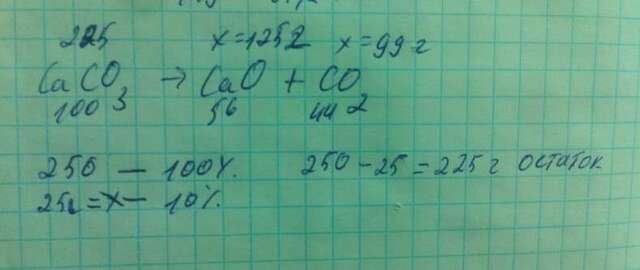 225 x=125г x=99г
CaCO3 → CaO + CO2
100 56 44
250 — 100%. 250-25=225г остаток
25г=x — 10%.